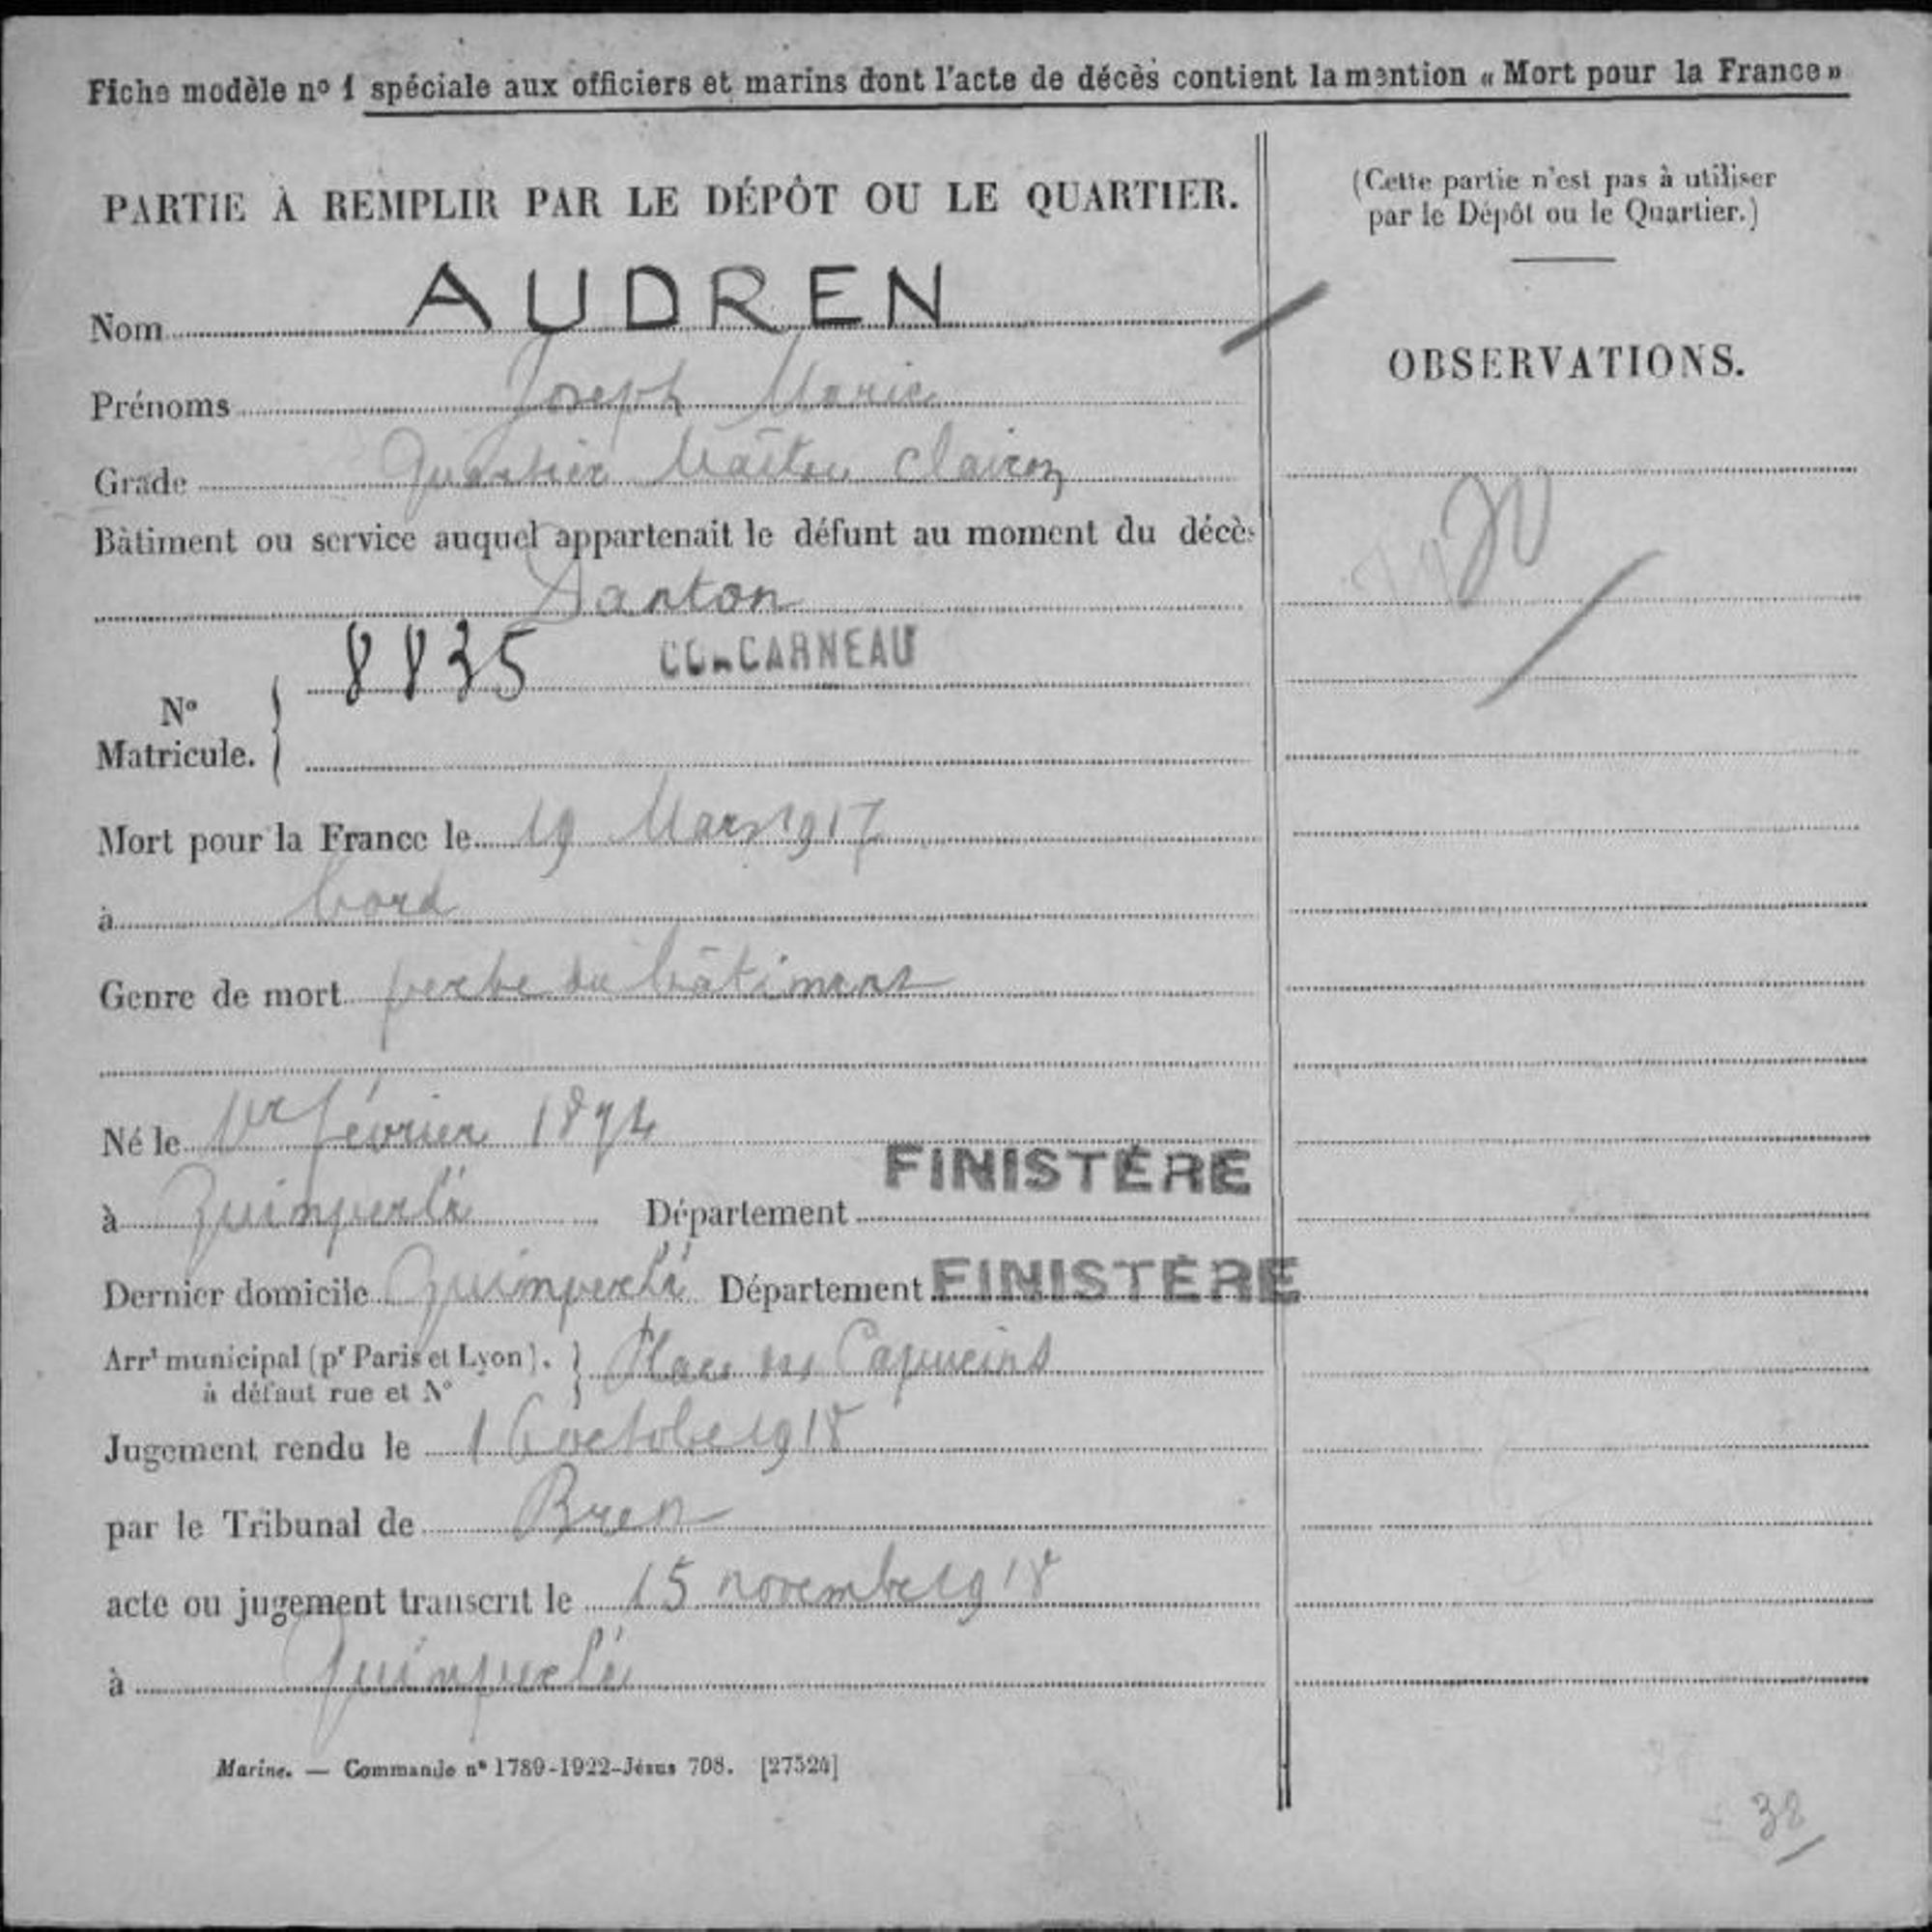 Fiche modèle n° 1 spéciale aux officiers et marins dont l'acte de décès contient la mention « Mort pour la France »
PARTIE À REMPLIR PAR LE DÉPÔT OU LE QUARTIER.
Nom AUDREN
Prénoms Joseph Marie
Grade Quartier Maître Clairon
Bâtiment ou service auquel appartenait le défunt au moment du décès
Danton
8835 CONCARNEAU
N°
Matricule.
Mort pour la France le 19 Mars 1917
à bord
Genre de mort perte du bâtiment
Né le 1er février 1894
à Quimperlé Département FINISTÈRE
Dernier domicile Quimperlé Département FINISTÈRE
Arrt municipal (pr Paris et Lyon). Place des Capucins
à défaut rue et N°
Jugement rendu le 16 octobre 1918
par le Tribunal de Brest
acte ou jugement transcrit le 15 novembre 1918
à Quimperlé
Marine. — Commande n° 1789-1922-Jésus 708. [27524]
(Cette partie n'est pas à utiliser
par le Dépôt ou le Quartier.)
OBSERVATIONS.
38